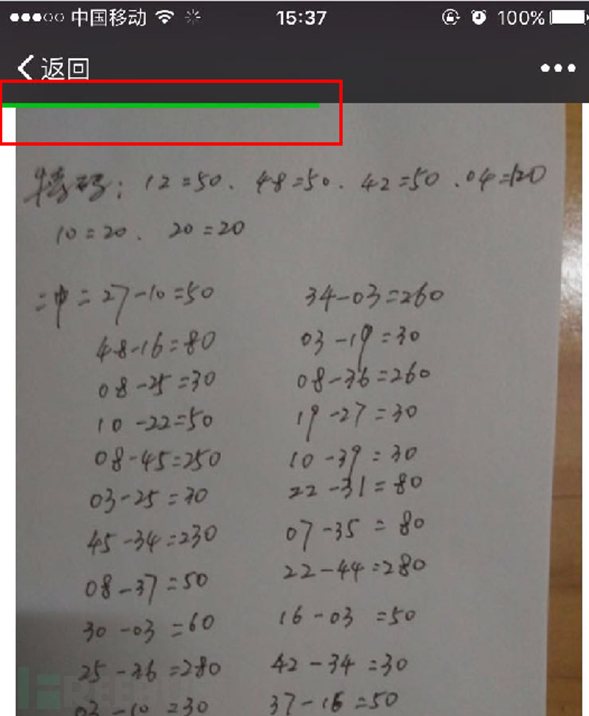 中国移动 15:37 100%
返回
特码: 12=50、48=50、42=50、04=120
10=20、20=20
二中二 27-10=50 34-03=260
48-16=80 03-19=30
08-25=30 08-36=260
10-22=50 19-27=30
08-45=250 10-39=30
03-25=30 22-31=80
45-34=230 07-35=80
08-37=50 22-44=280
30-03=60 16-03=50
25-36=280 42-34=30
03-10=30 37-16=50